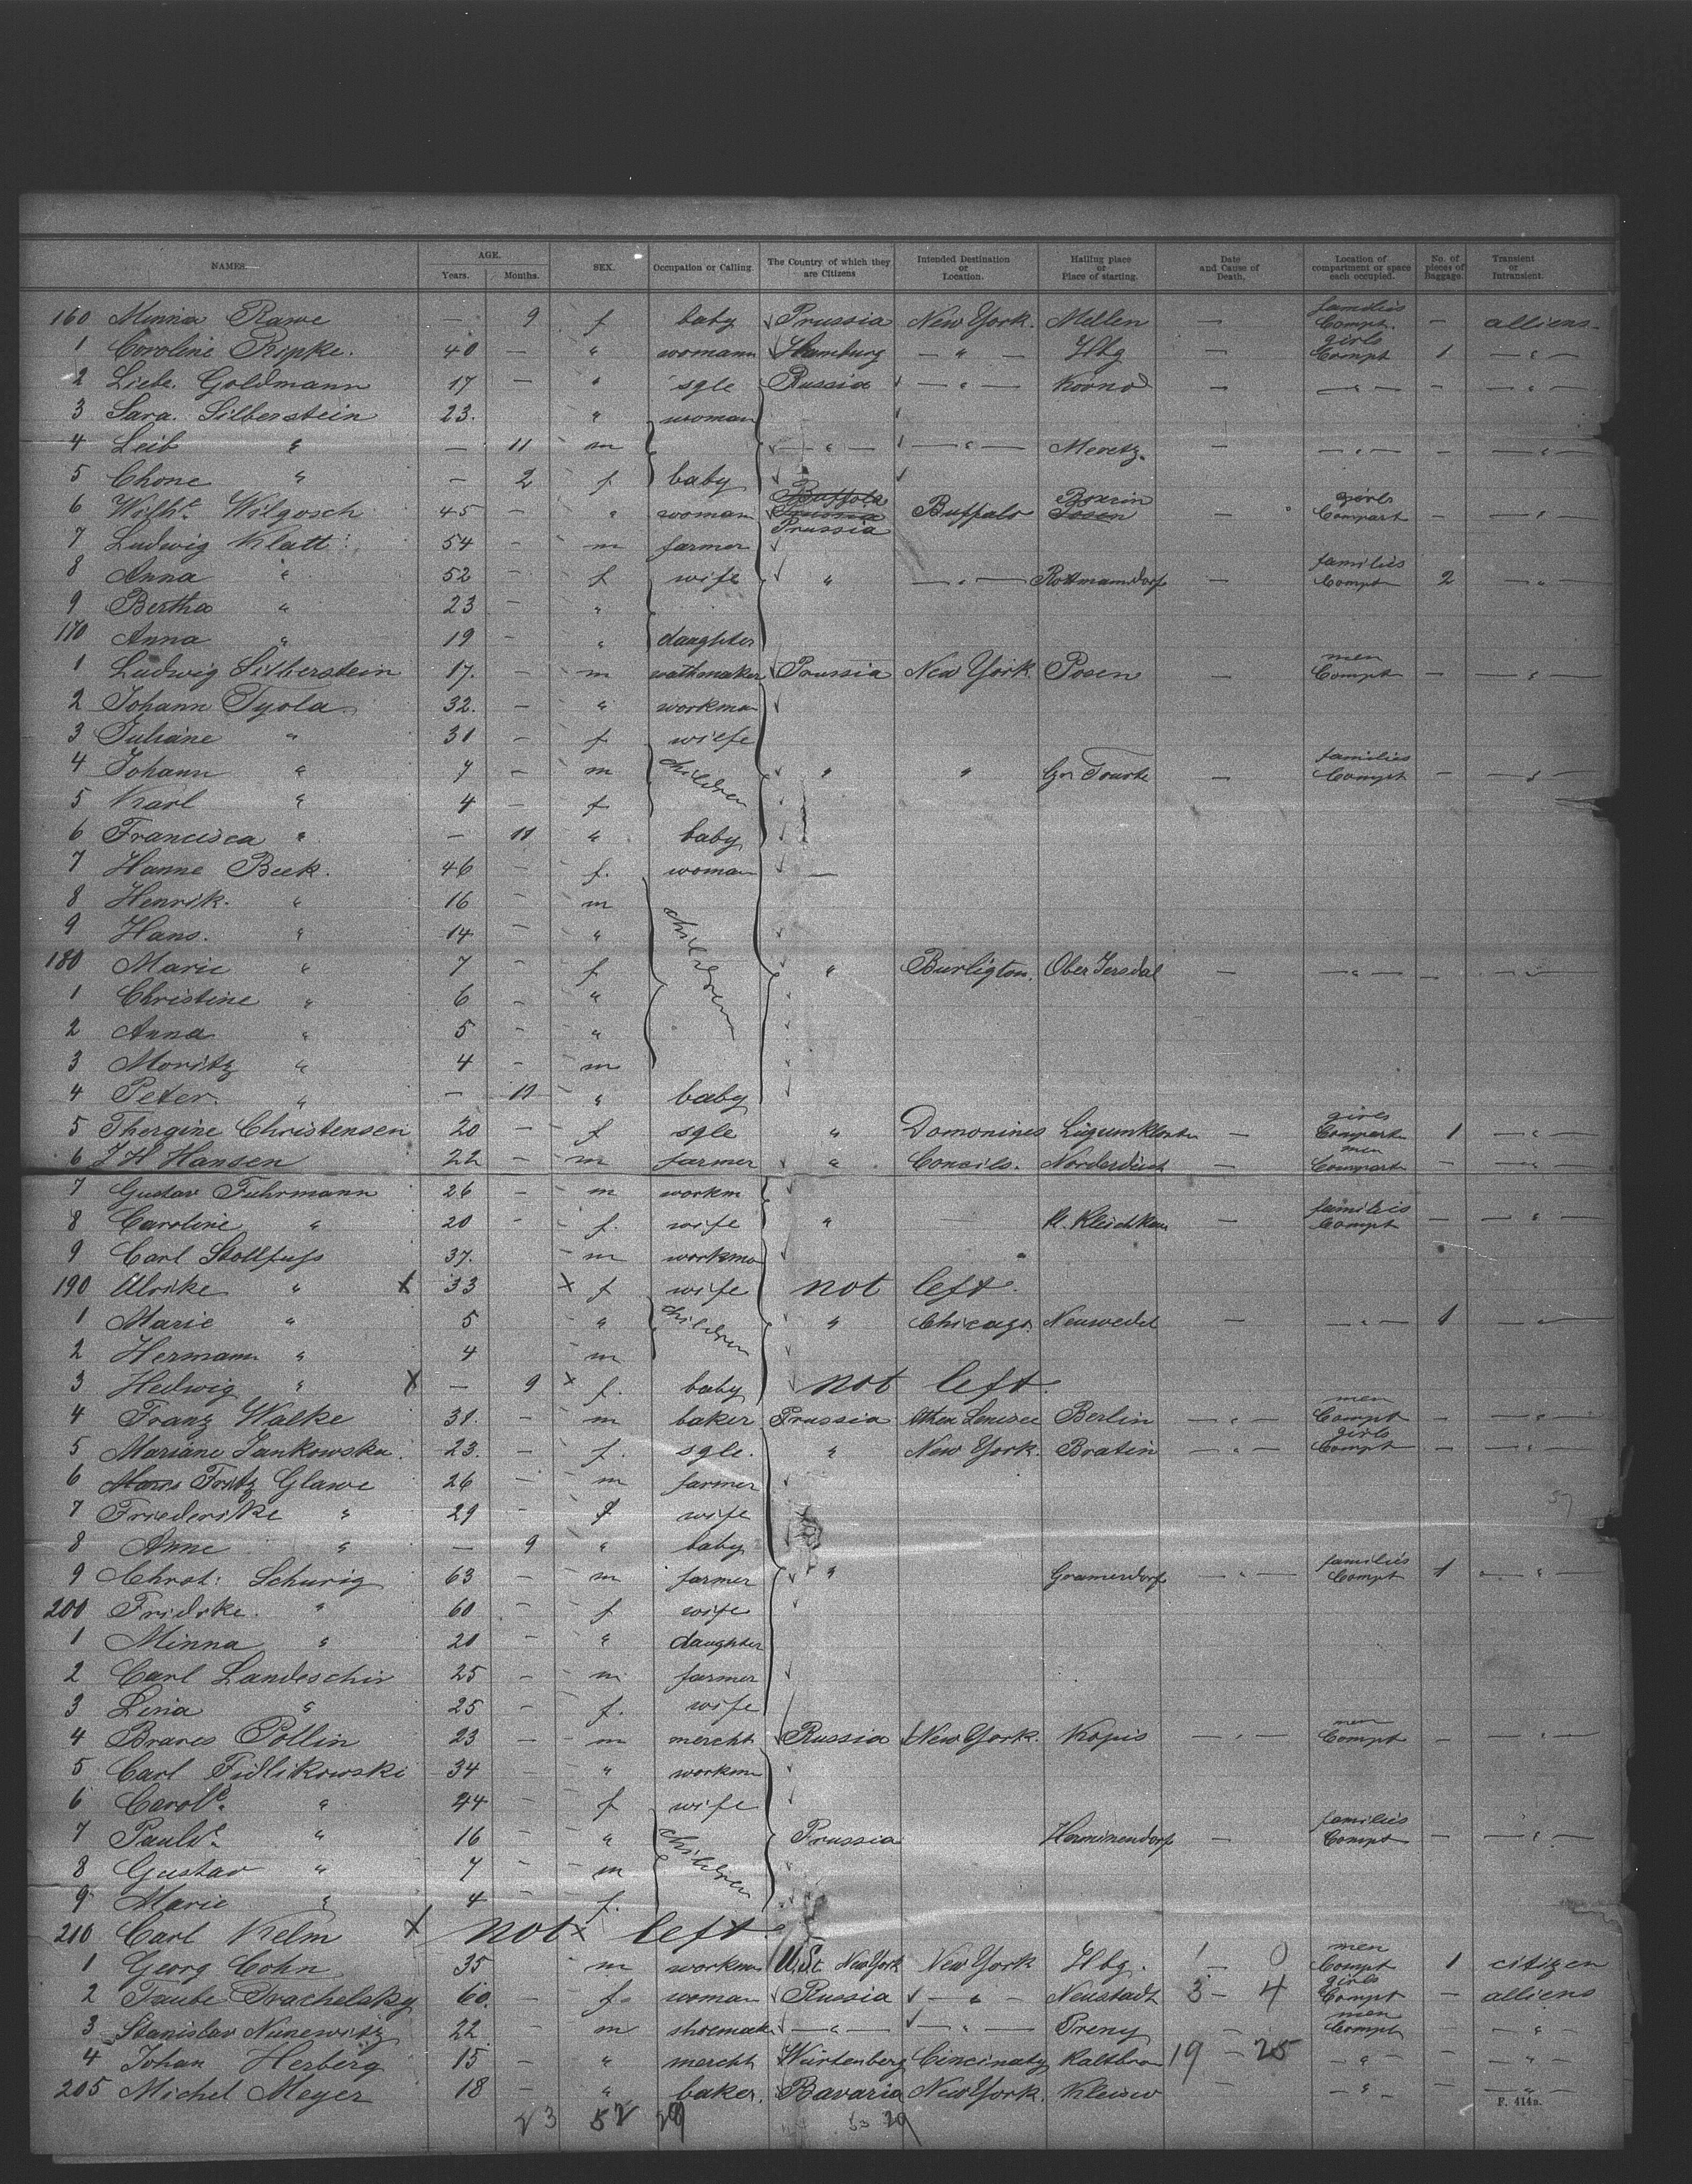 NAMES. AGE. Years. Months. SEX. Occupation or Calling. The Country of which they are Citizens Intended Destination or Location. Hailing place or Place of starting. Date and Cause of Death. Location of compartment or space each occupied. No. of pieces of Baggage. Transient or Intransient.
160 Minna Rawe — 9 f baby Prussia New York. Mellen — families Compt. — alliens
1 Coroline Ripke. 40 — " womann Hamburg — " — Hbg — girls Compt 1 — " —
2 Liebe Goldmann 17 — " sgle Russia — " — Kovno — — " — - — " —
3 Sara. Silberstein 23. " woman
4 Leib " — 11 m — " — — " — Meretz. — — " — - — " —
5 Chone " — 2 f baby
6 Wilhe. Wilgosch 45 — " woman Prussia Buffalo — girls Compart - — " —
7 Ludwig Klatt 54 - m farmer
8 Anna " 52 - f wife " — " — Rottmansdorf — families Compt 2 — " —
9 Bertha " 23 — "
170 Anna " 19 — " daughter
1 Ludwig Silberstein 17. — m wathmaker Prussia New York Posen — men Compt — — " —
2 Johann Tyola 32. — " workman
3 Juliane " 31 - f wiefe
4 Johann " 7 — m children " " Gr. — families Compt — — " —
5 Karl " 4 — f
6 Francisca " — 11 " baby
7 Hanne Beek. 46 — f. woman —
8 Henrik. " 16 — m children
9 Hans. " 14 — "
180 Marie " 7 — f " Burligton. Ober Jersdal — — " — — — " —
1 Christine " 6 — "
2 Anna " 5 - "
3 Moritz " 4 - m
4 Peter. " — 11 " baby
5 Thergine Christensen 20 — f sgle " Domonines Lügumkloster — girls Compart 1 — " —
6 J H Hansen 22 — m farmer " Concils. — men Compart — — " —
7 Gustav Fuhrmann 26 - m workm
8 Caroline " 20 - f. wife " — — families Compt — — " —
9 Carl Stollfuss 37. m workma
190 Ulrike " x 33 x f wife not left.
1 Marie " 5 " children " Chicago. Neuwedel — — " — 1 — " —
2 Hermann " 4 m
3 Hedwig " x — 9 x f. baby not left.
4 Franz Walke 31. - m baker Prussia Berlin — " — men Compt - — " —
5 Mariane Jankowska. 23. — f. sgle. " New York. Bratin — " — girls Compt — — " —
6 Fritz Glawe 26 - m farmer
7 Friederike " 29 - f wife
8 Anne " — 9 " baby
9 Christ: Schurig 63 - m farmer " Gramersdorf — " — families Compt 1 — " —
200 Fridrke. " 60 - f wife
1 Minna " 20 - " daughter
2 Carl Landeschir 25 - m farmer
3 Lina " 25 - f. wife
4 Brares Pollin 23 — m mercht Russia New York. Kopis — " — men Compt - — " —
5 Carl Fidlikowski 34 - " workm
6 Carole. " 44 - f wife
7 Paule. " 16 - " children Prussia — families Compt — — " —
8 Gustav " 7 - m
9 Marie " 4 - f.
210 Carl Kelm x not x left.
1 Georg Cohn 35 m workm U.St. New York New York Hbg. 1 — 0 men Compt 1 citizen
2 Taube Trachelsky 60. — f. woman Russia — " — Neustadt 3 - 4 girls Compt — alliens
3 Stanislav Nunewitz 22 — m shoemak — " — — " — Preny — men Compt — — " —
4 Johan Herberg 15 — " mercht Würtenberg Cincinaty 19 — 25 — " — — — " —
205 Michel Meyer 18 - " baker. Bavaria New York. — — " — — — " —
F. 414a.
23 52 29